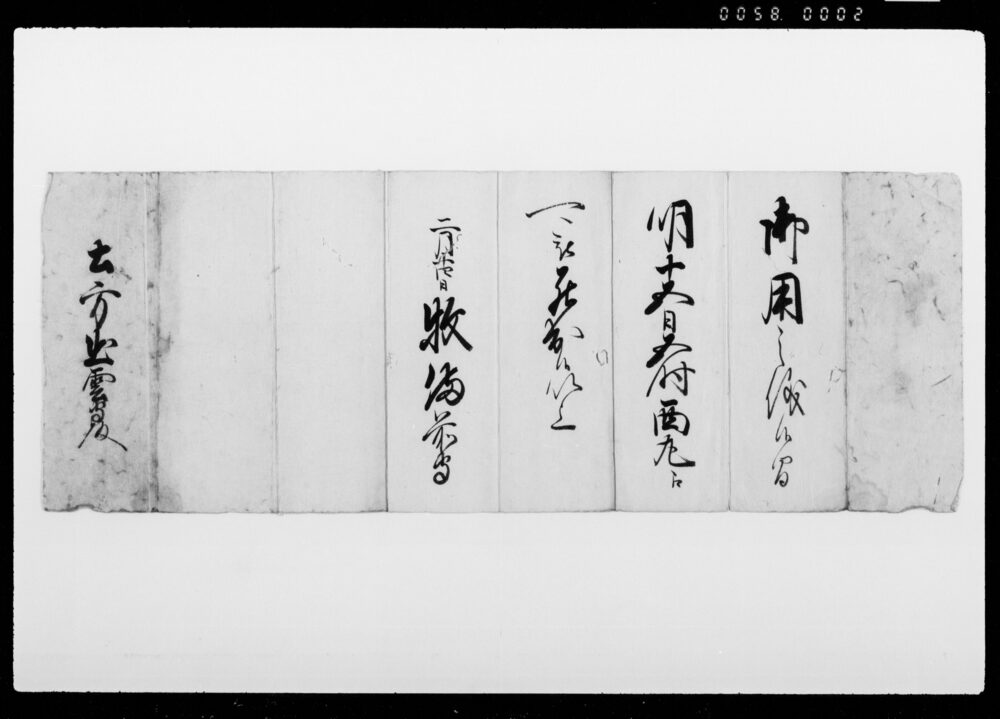 0058. 0002
御用之儀候間
明十五日五時西丸江
可被罷出候以上
二月十四日 牧備前守
土方出雲守殿